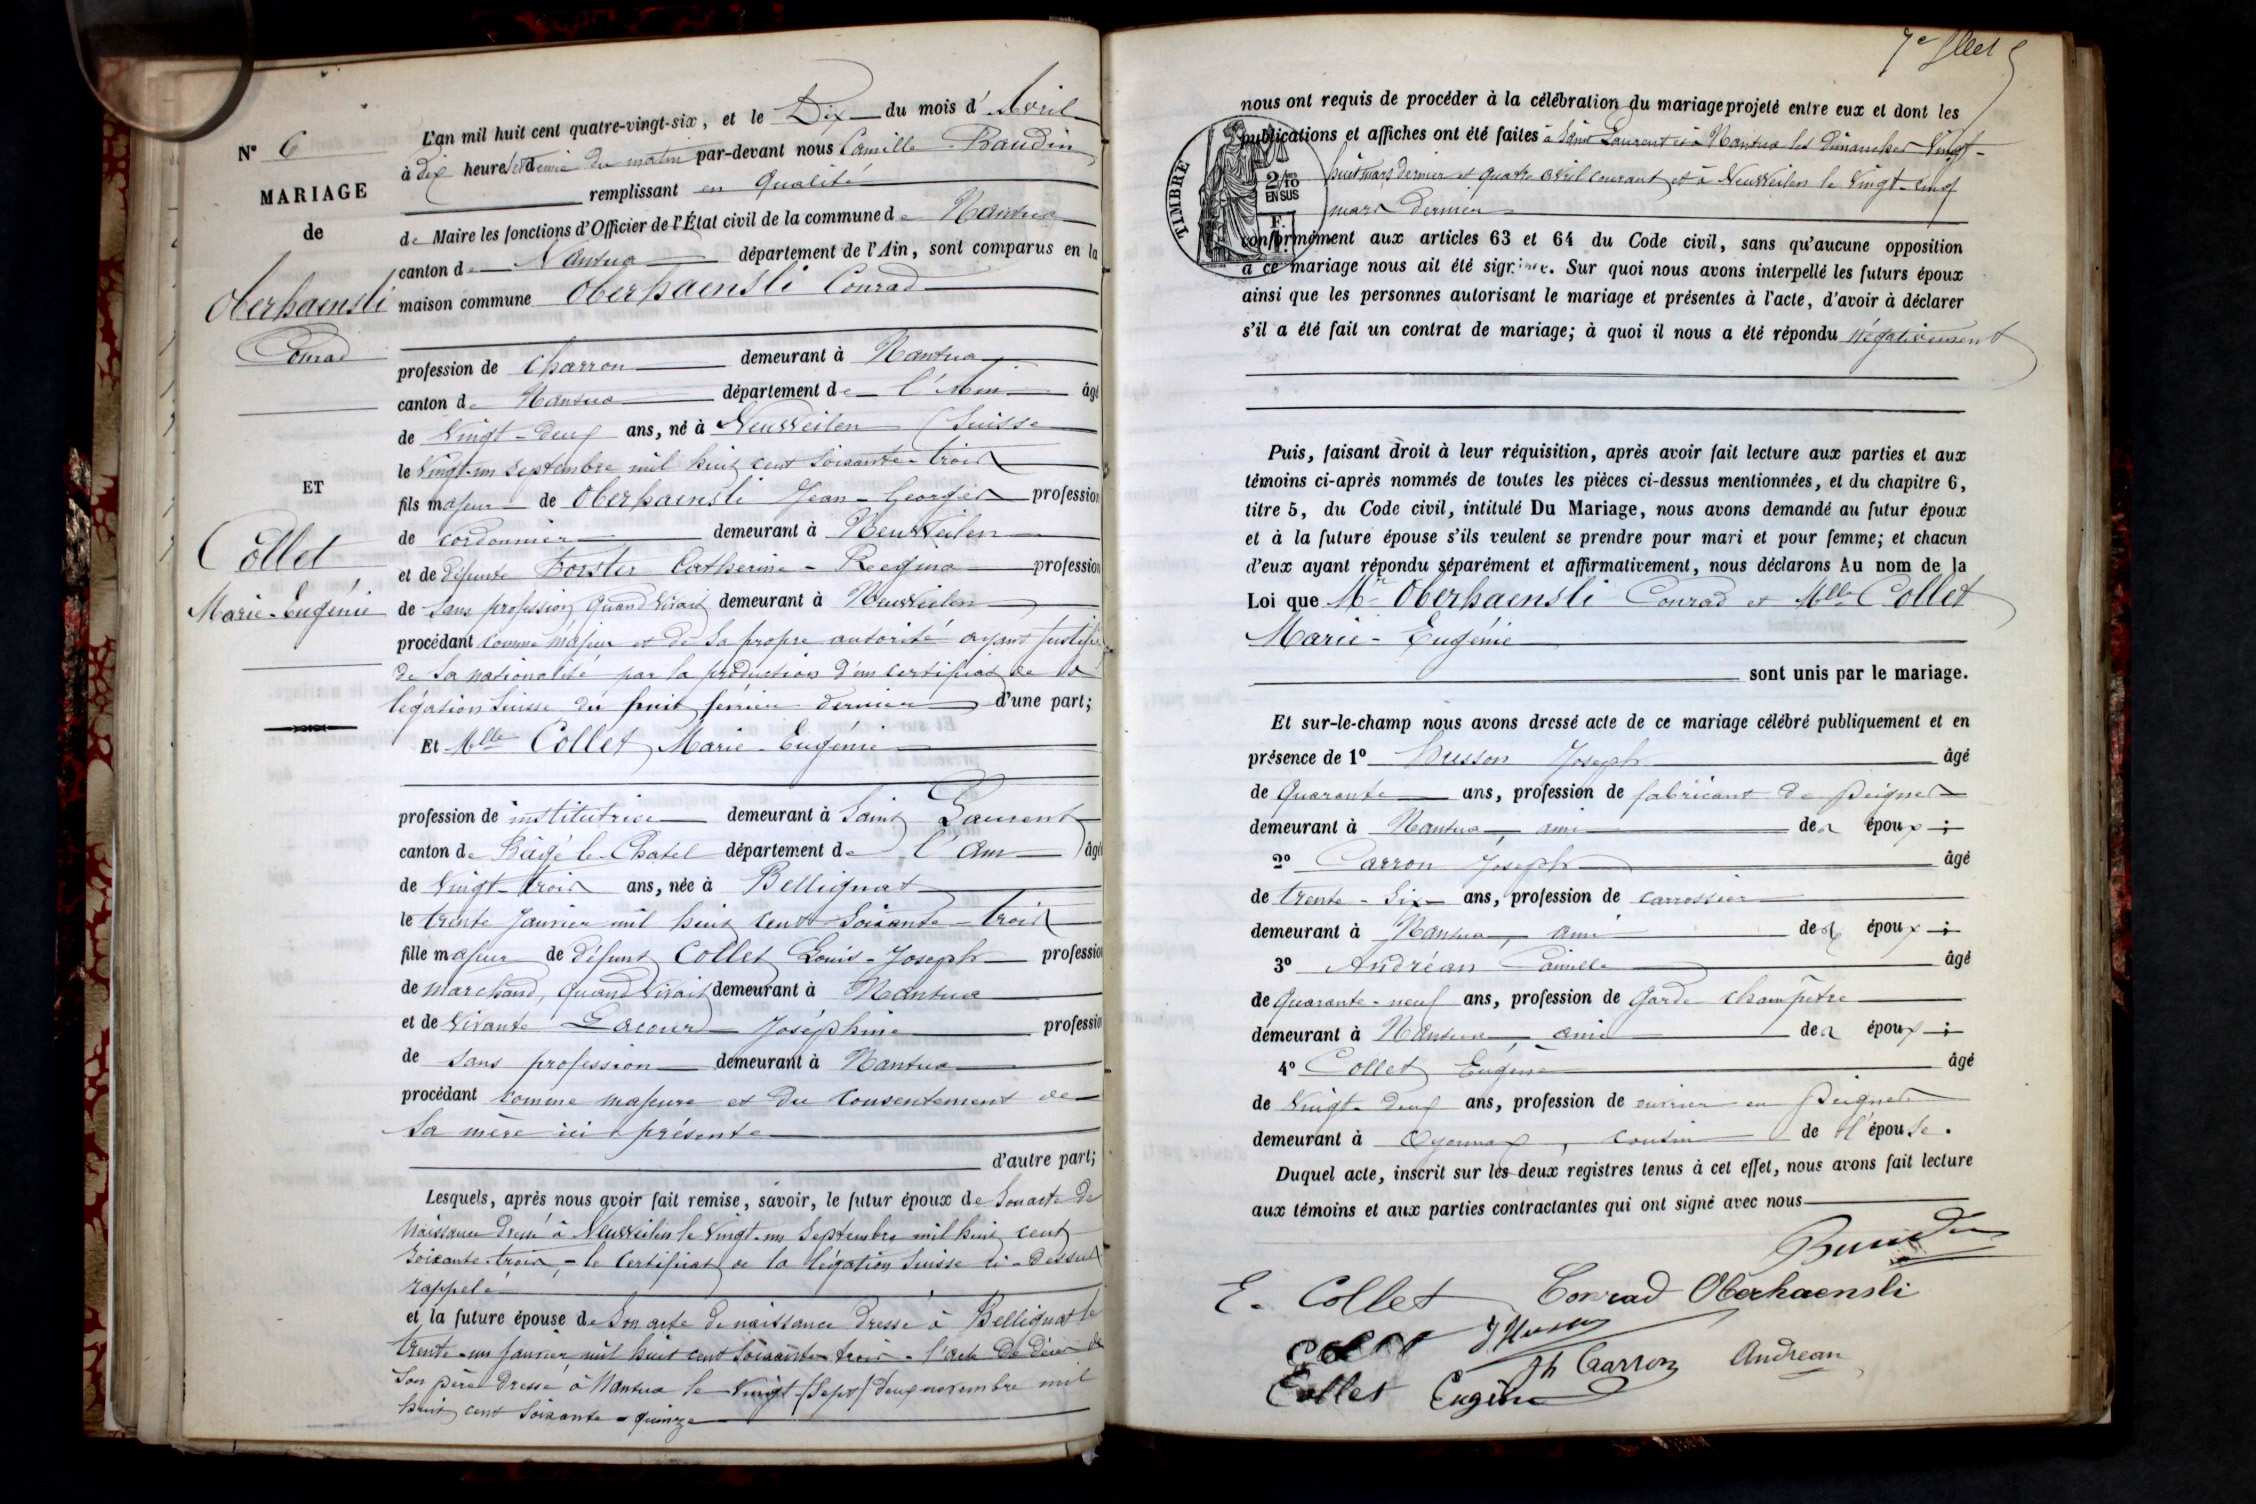 N° 6
MARIAGE
de
Oberhaensli
Conrad
ET
Collet
Marie-Eugénie
L'an mil huit cent quatre-vingt-six, et le Dix du mois d'Avril
à dix heures et demie du matin par-devant nous Camille Baudin
remplissant en qualité
de Maire les fonctions d'Officier de l'État civil de la commune de Nantua
canton de Nantua département de l'Ain, sont comparus en la
maison commune Oberhaensli Conrad
profession de Charron demeurant à Nantua
canton de Nantua département de l'Ain âgé
de Vingt-deux ans, né à Neuweilen (Suisse
le Vingt-un septembre mil huit cent soixante-trois
fils majeur de Oberhaensli Jean-Georges profession
de cordonnier demeurant à Neuweilen
et de défunte Forster Catherine - Reegina profession
de sans profession, quand vivait demeurant à Neuweilen
procédant comme majeur et de sa propre autorité ayant justifié
de sa nationalité par la production d'un certificat de la
légation suisse du huit février dernier d'une part;
Et Mlle Collet Marie-Eugénie
profession de institutrice demeurant à Saint Laurent
canton de Bâgé-le-Chatel département de l'Ain âgé
de Vingt-trois ans, née à Bellignat
le trente Janvier mil huit cent soixante-trois
fille majeur de défunt Collet Louis-Joseph profession
de marchand, quand vivait demeurant à Nantua
et de vivante Lacour Joséphine profession
de sans profession demeurant à Nantua
procédant comme majeure et du consentement de
sa mère ici présente
d'autre part;
Lesquels, après nous avoir fait remise, savoir, le futur époux de son acte de
naissance dressé à Neuweilen le vingt-un septembre mil huit cent
soixante-trois, - le certificat de la légation suisse ci-dessus
rappelé
et la future épouse de son acte de naissance dressé à Bellignat le
trente-un janvier mil huit cent soixante-trois - l'acte de décès de
son père dressé à Nantua le vingt (sept) deux novembre mil
huit cent soixante-quinze
7e fllet
nous ont requis de procéder à la célébration du mariage projeté entre eux et dont les
publications et affiches ont été faites à Saint Laurent et à Nantua les Dimanches Vingt-
huit mars dernier et quatre avril courant et à Neuweilen le vingt-cinq
mars dernier
TIMBRE
2/10
EN SUS
F.
conformément aux articles 63 et 64 du Code civil, sans qu'aucune opposition
à ce mariage nous ait été signifiée. Sur quoi nous avons interpellé les futurs époux
ainsi que les personnes autorisant le mariage et présentes à l'acte, d'avoir à déclarer
s'il a été fait un contrat de mariage; à quoi il nous a été répondu négativement
Puis, faisant droit à leur réquisition, après avoir fait lecture aux parties et aux
témoins ci-après nommés de toutes les pièces ci-dessus mentionnées, et du chapitre 6,
titre 5, du Code civil, intitulé Du Mariage, nous avons demandé au futur époux
et à la future épouse s'ils veulent se prendre pour mari et pour femme; et chacun
d'eux ayant répondu séparément et affirmativement, nous déclarons Au nom de la
Loi que Mr Oberhaensli Conrad et Mlle Collet
Marie-Eugénie
sont unis par le mariage.
Et sur-le-champ nous avons dressé acte de ce mariage célébré publiquement et en
présence de 1° Husson Joseph âgé
de Quarante ans, profession de fabricant de peignes
demeurant à Nantua, ami des époux;
2° Carron Joseph âgé
de trente-six ans, profession de carrossier
demeurant à Nantua, ami des époux;
3° Andréan Camille âgé
de Quarante-neuf ans, profession de Garde champêtre
demeurant à Nantua, ami des époux;
4° Collet Eugène âgé
de Vingt-deux ans, profession de ouvrier en Peignes
demeurant à Oyonnax, cousin de l'épouse.
Duquel acte, inscrit sur les deux registres tenus à cet effet, nous avons fait lecture
aux témoins et aux parties contractantes qui ont signé avec nous
Baudin
E. Collet Conrad Oberhaensli
J Husson
Jh Carron Andrean
Collet Eugène